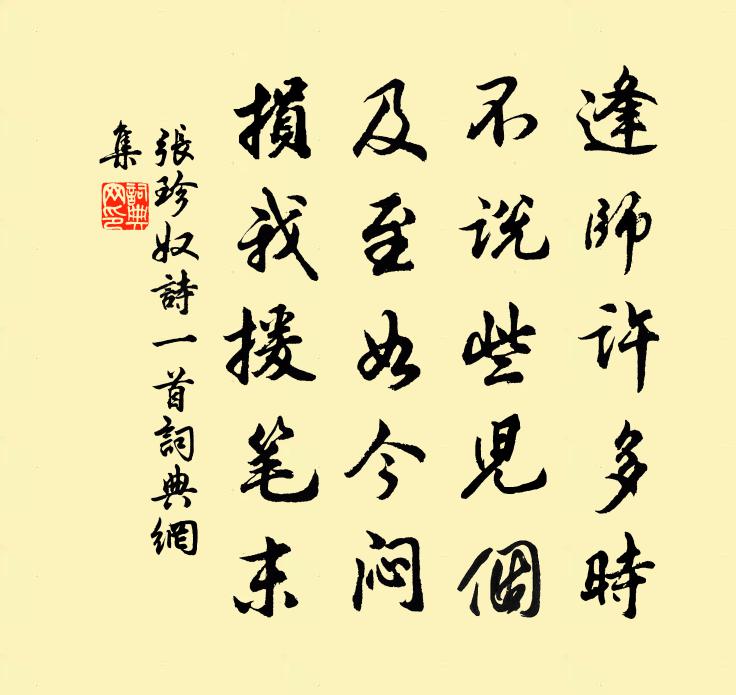 逢師許多時
不説些兒個
及至如今悶
損我援笔末
張珍奴詩一首詞典網
集
詞典
网印